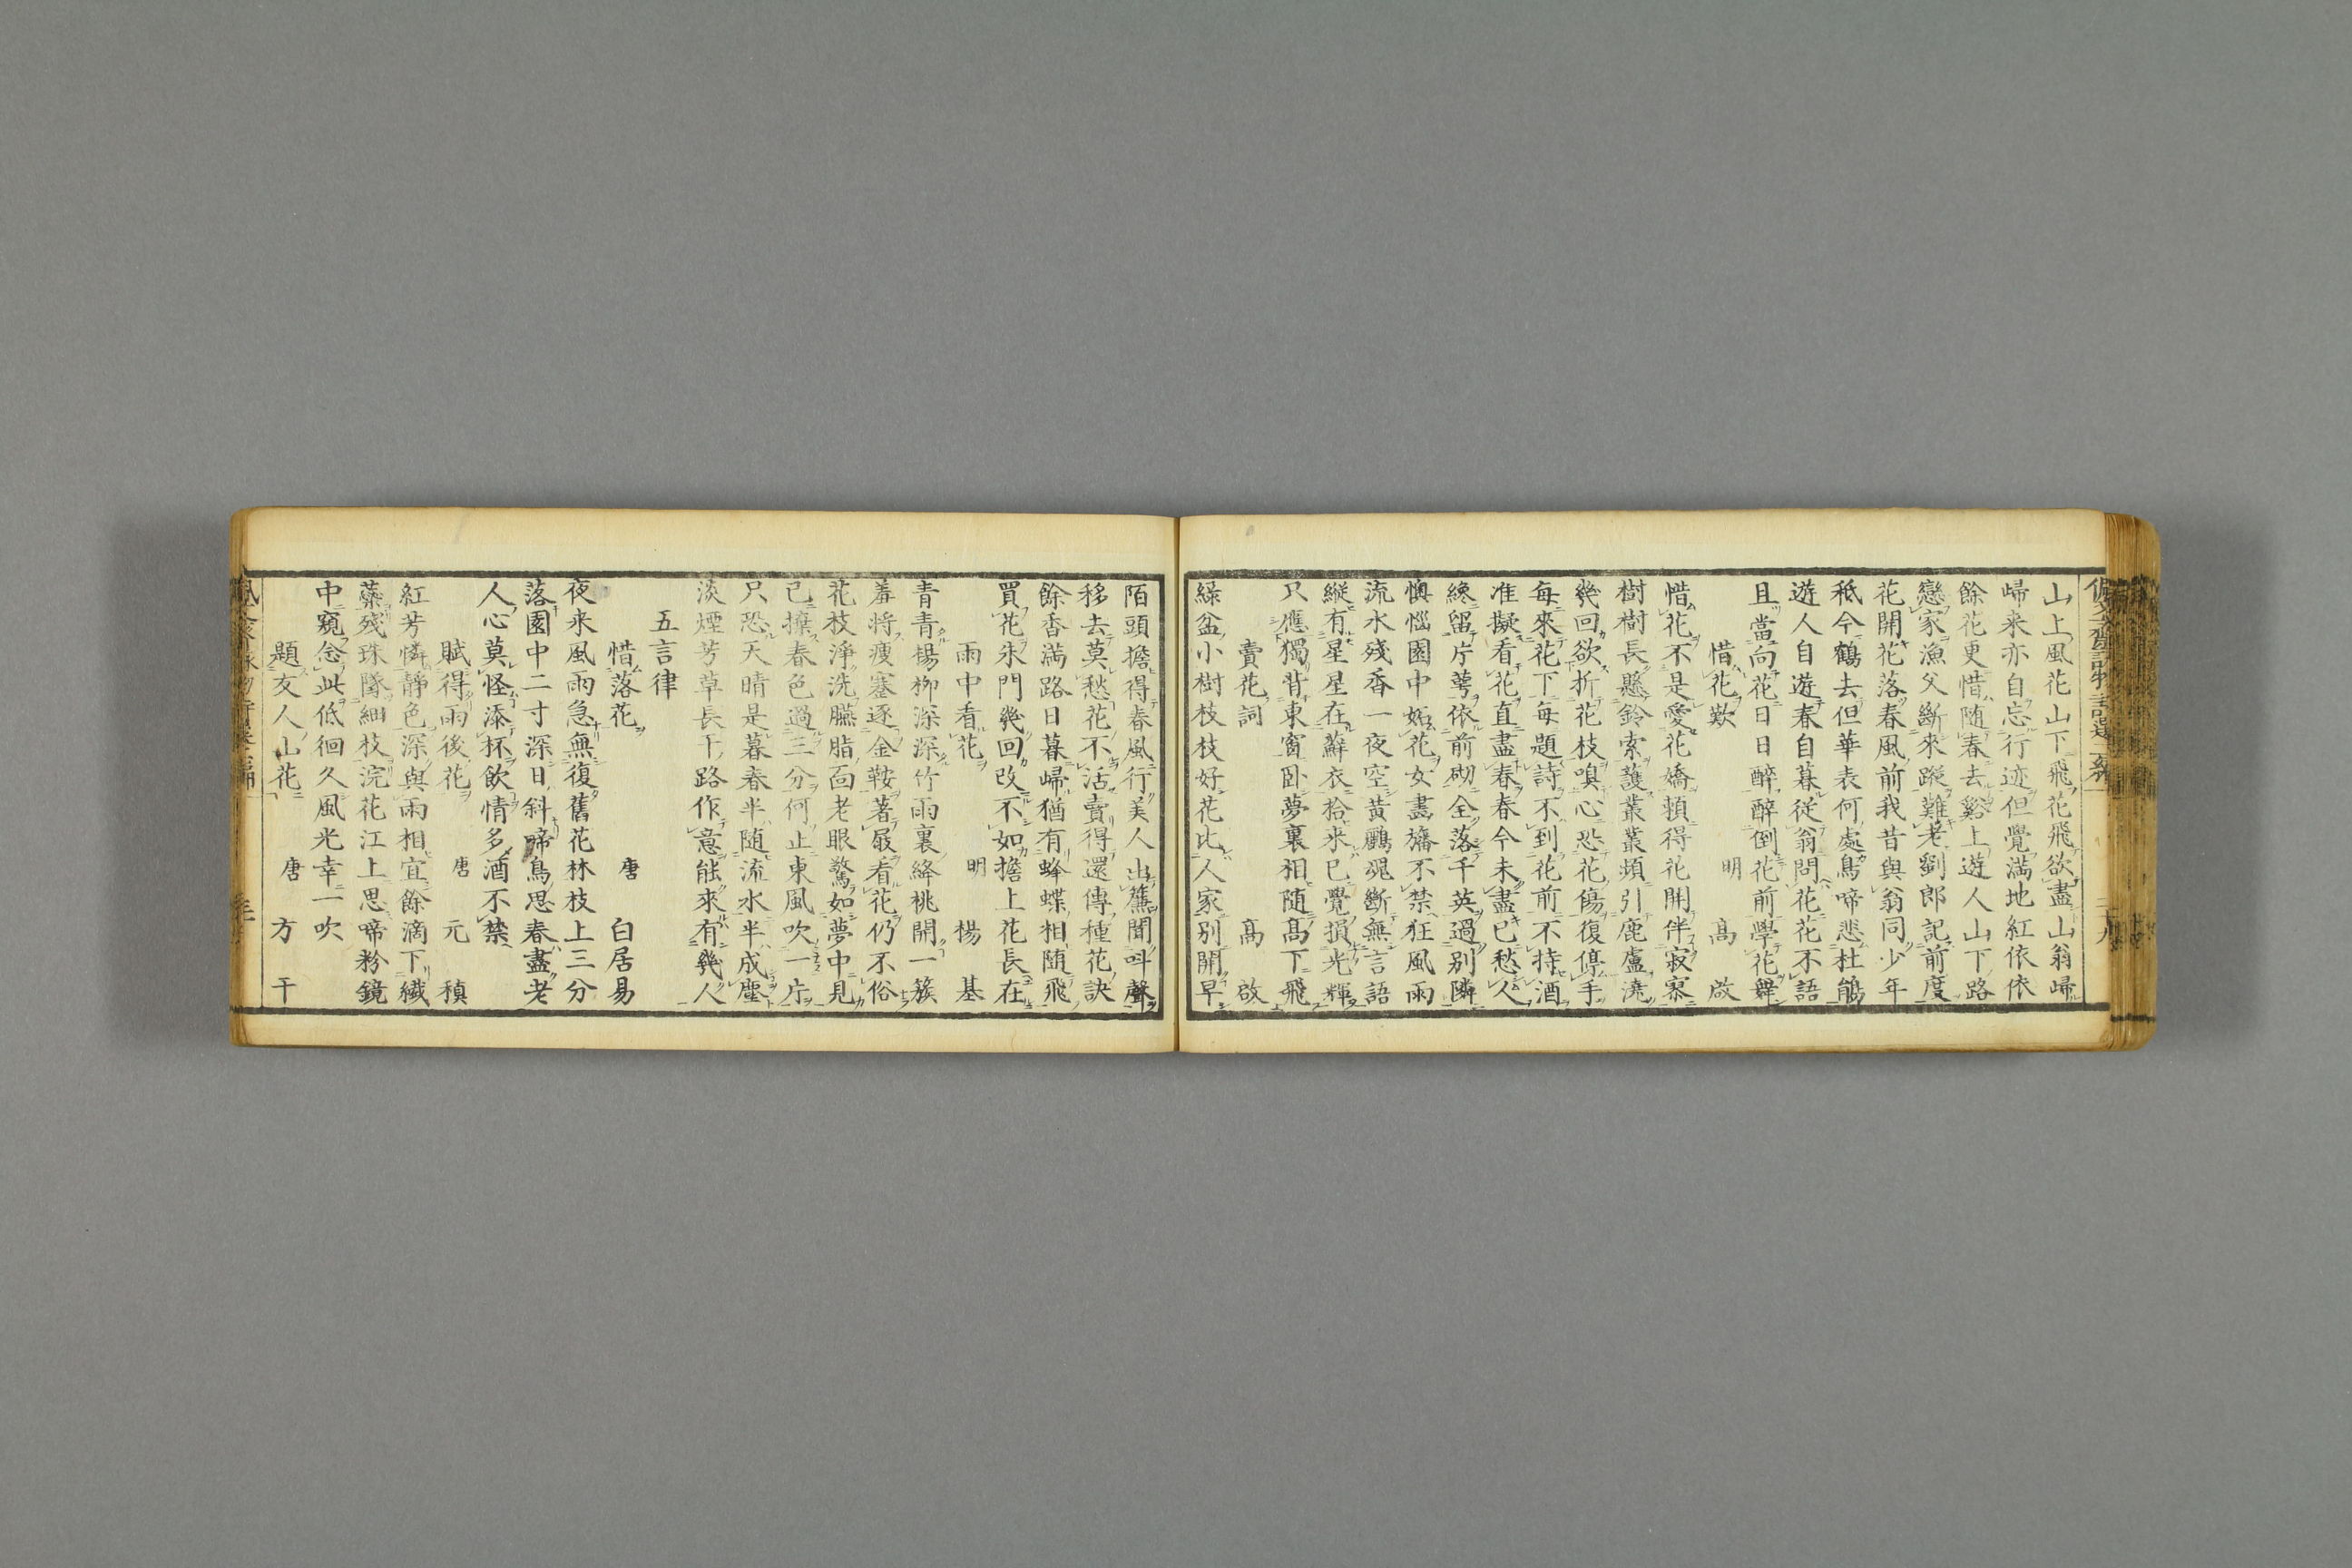 山上風花山下飛花飛欲盡山翁歸
歸来亦自忘行迹但覺満地紅依依
餘花更惜随春去谿上遊人山下路
戀家漁父斷來蹤難老劉郎記前度
花開花落春風前我昔與翁同少年
秪今鶴去但華表何處鳥啼悲杜鵑
遊人自遊春自暮從翁問花花不語
且當向花日日醉醉倒花前學花舞
惜花歎 明 高啟
惜花不是愛花嬌頼得花開伴寂寥
樹樹長懸鈴索護叢叢頻引鹿盧澆
幾回欲折花枝嗅心恐花傷復停手
毎來花下毎題詩不到花前不持酒
准擬看花直盡春春今未盡已愁人
纔留片萼依前砌全落千英過別隣
懊惱園中妬花女畫旛不禁狂風雨
流水殘香一夜空黃鸝魂斷無言語
縦有星星在蘚衣拾来已覺損光輝
只應獨背東窗卧夢裏相随高下飛
賣花詞 高啟
緑盆小樹枝枝好花比人家別開早
陌頭擔得春風行美人出簾聞叫聲
移去莫愁花不活賣得還傳種花訣
餘香満路日暮歸猶有蜂蝶相随飛
買花朱門幾回改不如擔上花長在
雨中看花 明 楊基
青青楊柳深深竹雨裏絳桃開一簇
羞将瘦蹇逐金鞍著屐看花仍不俗
花枝淨洗臙脂面老眼驚如夢中見
已擠春色過三分何止東風吹一片
只恐天晴是暮春半随流水半成塵
淡煙芳草長干路作意能來有幾人
五言律
惜落花 唐 白居易
夜来風雨急無復舊花林枝上三分
落園中二寸深日斜啼鳥思春盡老
人心莫怪添杯飲情多酒不禁
賦得雨後花 唐 元稹
紅芳憐静色深與雨相宜餘滴下纎
蘂殘珠墮細枝浣花江上思啼粉鏡
中窺念此低徊久風光幸一吹
題友人山花 唐 方干